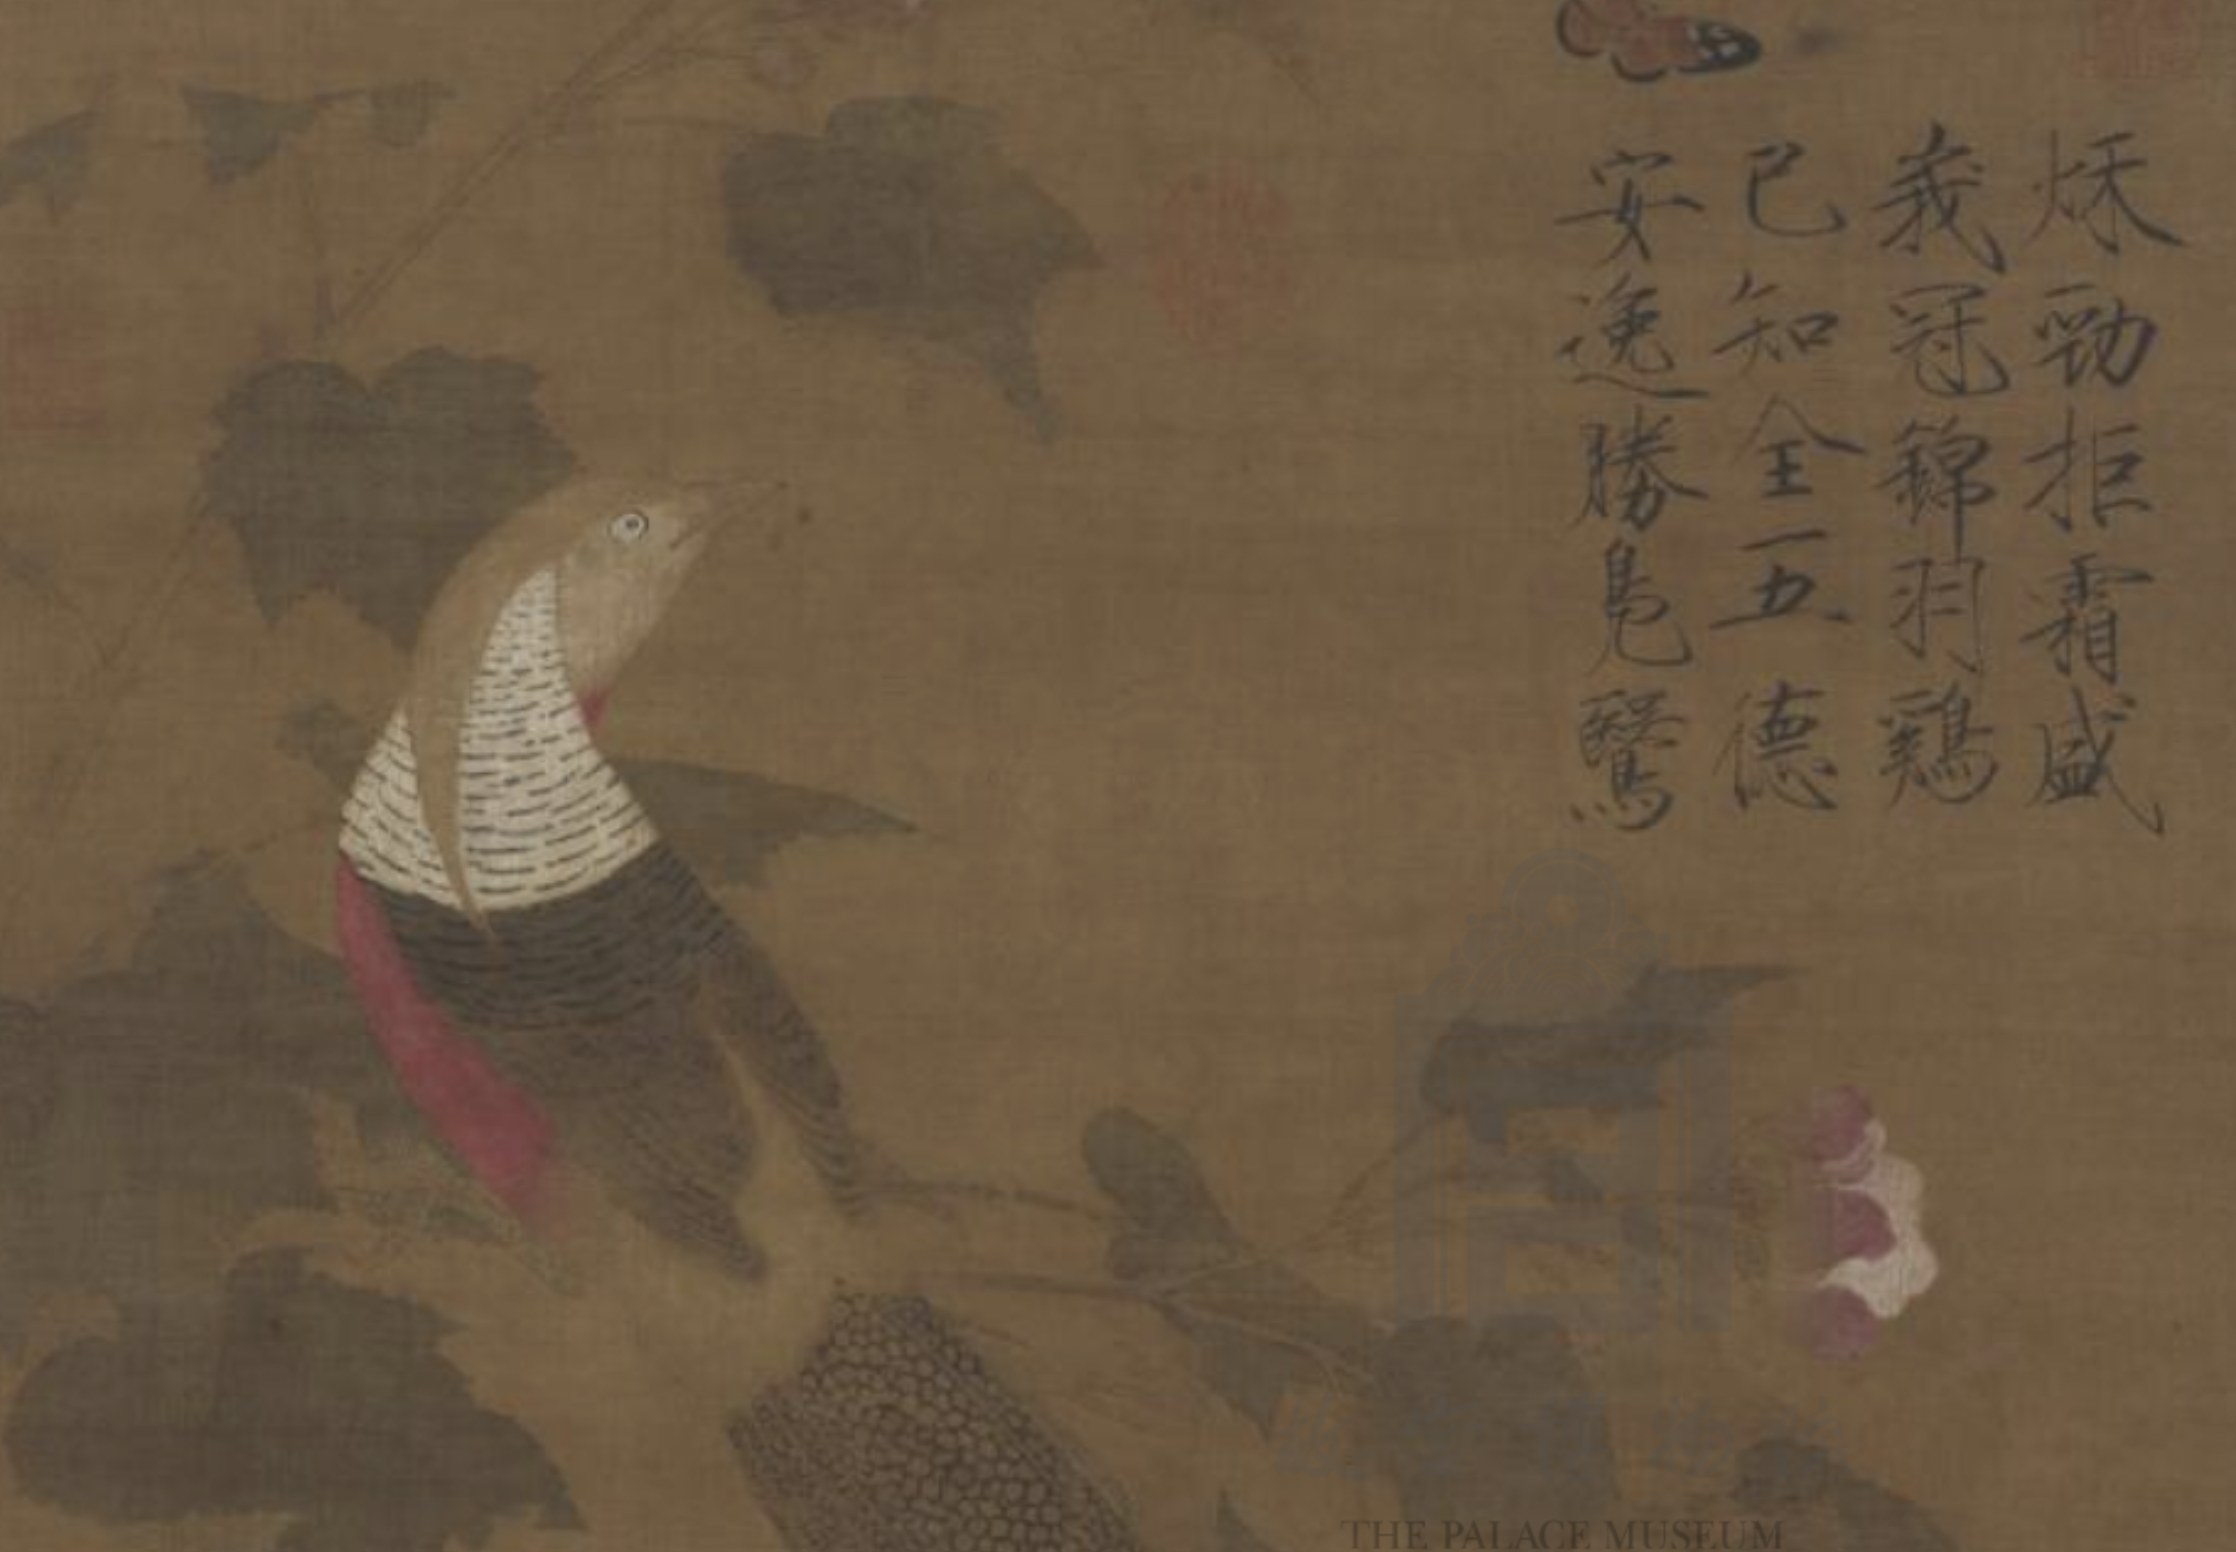 秌勁拒霜盛
莪冠錦羽鷄
已知全五德
安逸勝鳬鷖
THE PALACE MUSEUM